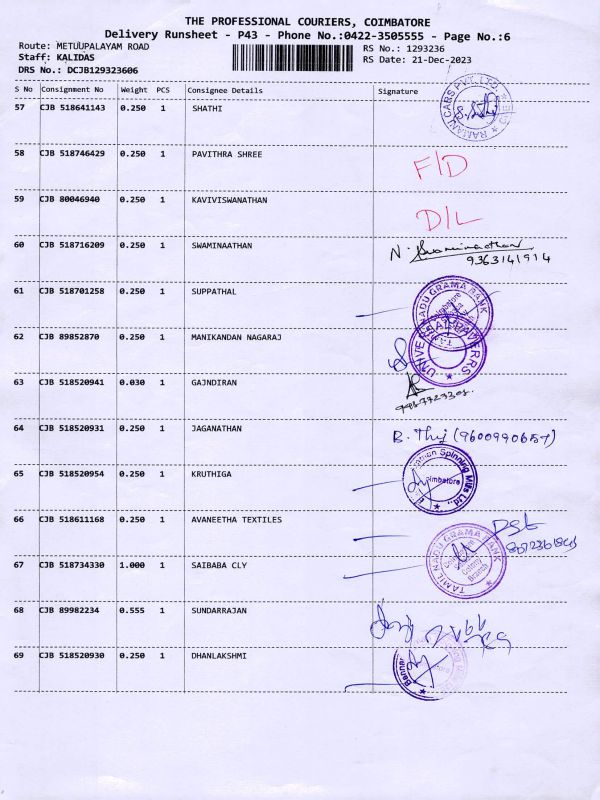 THE PROFESSIONAL COURIERS, COIMBATORE
Delivery Runsheet - P43 - Phone No.:0422-3505555 - Page No.:6
Route: METUUPALAYAM ROAD
RS No.: 1293236
Staff: KALIDAS
RS Date: 21-Dec-2023
DRS No.: DCJB129323606
S No Consignment No Weight PCS Consignee Details Signature
57 CJB 518641143 0.250 1 SHATHI
RAMANI CARS PVT. LTD.
58 CJB 518746429 0.250 1 PAVITHRA SHREE F/D
59 CJB 80046940 0.250 1 KAVIVISWANATHAN D/L
60 CJB 518716209 0.250 1 SWAMINAATHAN N. Swaminathan
9363141914
61 CJB 518701258 0.250 1 SUPPATHAL
TAMIL NADU GRAMA BANK
Coimbatore
62 CJB 89852870 0.250 1 MANIKANDAN NAGARAJ
63 CJB 518520941 0.030 1 GAJNDIRAN
64 CJB 518520931 0.250 1 JAGANATHAN B. Thij (9600990657)
65 CJB 518520954 0.250 1 KRUTHIGA
Spinning Mills Ltd.,
66 CJB 518611168 0.250 1 AVANEETHA TEXTILES
67 CJB 518734330 1.000 1 SAIBABA CLY
TAMIL NADU GRAMA BANK
Colony
Branch
68 CJB 89982234 0.555 1 SUNDARRAJAN
69 CJB 518520930 0.250 1 DHANLAKSHMI